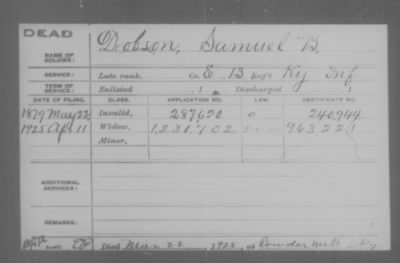 DEAD
NAME OF SOLDIER: Dobson, Samuel B.
SERVICE: Late rank, Co. E, 13 Reg't Ky Inf
TERM OF SERVICE: Enlisted 1 Discharged 1
DATE OF FILING. CLASS. APPLICATION NO. LAW. CERTIFICATE NO.
1879 May 22 Invalid, 287620 240,944
1925 Apl 11 Widow, 1,231,702 963221
Minor,
ADDITIONAL SERVICES:
REMARKS:
Died Mar 22, 1925, at Powder Mills, Ky.